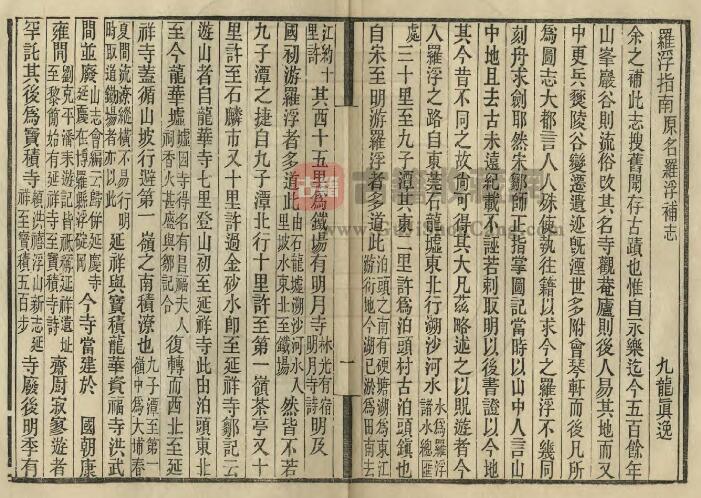 羅浮指南原名羅浮補志
九龍真逸
余之補此志搜舊聞存古蹟也惟自永樂迄今五百餘年
山峯巖谷則流俗攺其名寺觀菴廬則後人易其地而又
中更兵燹陵谷變遷遺迹旣湮世多附會琴軒而後凡所
爲圖志大都言人人殊使執往籍以求今之羅浮不幾同
刻舟求劍耶然宋鄒師正指掌圖記當時以山中人言山
中地且去古未遠紀載不誣若刺取明以後書證以今地
其今昔不同之故愈得其大凡茲略述之以貺遊者今
人羅浮之路自東莞石龍墟東北行溯沙河水
水爲羅浮諸水總匯
處
三十里至九子潭其東一里許爲泊頭村古泊頭鎭也
自宋至明游羅浮者多道此
泊頭之南有硬塘湖爲東江
游衍地今湖已淤爲田南去
江約十里許
其西十五里爲鐵場有明月寺
林光有宿明月寺詩
明及
國初游羅浮者多道此
由石龍墟溯沙河水
里披水東北至鐵場
人然皆不若
九子潭之捷自九子潭北行十里許至第一嶺茶亭又十
里許至石麟市又十里許過金砂水卽至延祥寺鄒記云
遊山者自龍華寺七里登山初至延祥寺此由泊頭東北
至今龍華墟
墟因寺得名有昌福夫人
祠香火甚盛與鄒記合
復轉而西北至延
祥寺蓋循山坡行避第一嶺之南積潦也
九子潭至第一
嶺中爲大埔春
夏間流潦縱橫不易行明
時取道鐵場者亦以此
延祥與寶積龍華資福寺洪武
間並廢
山志會編云歸併延慶寺
延慶在博羅縣浮碇岡
今寺當建於
國朝康
雍間
劉克平潘耒遊記皆祇稱延祥遺址
至黎簡始有延祥寺至寶積寺詩
齋厨寂寥遊者
罕託其後爲寶積寺
賴洪禧浮山新志延
祥至寶積五百步
寺廢後明季有
一